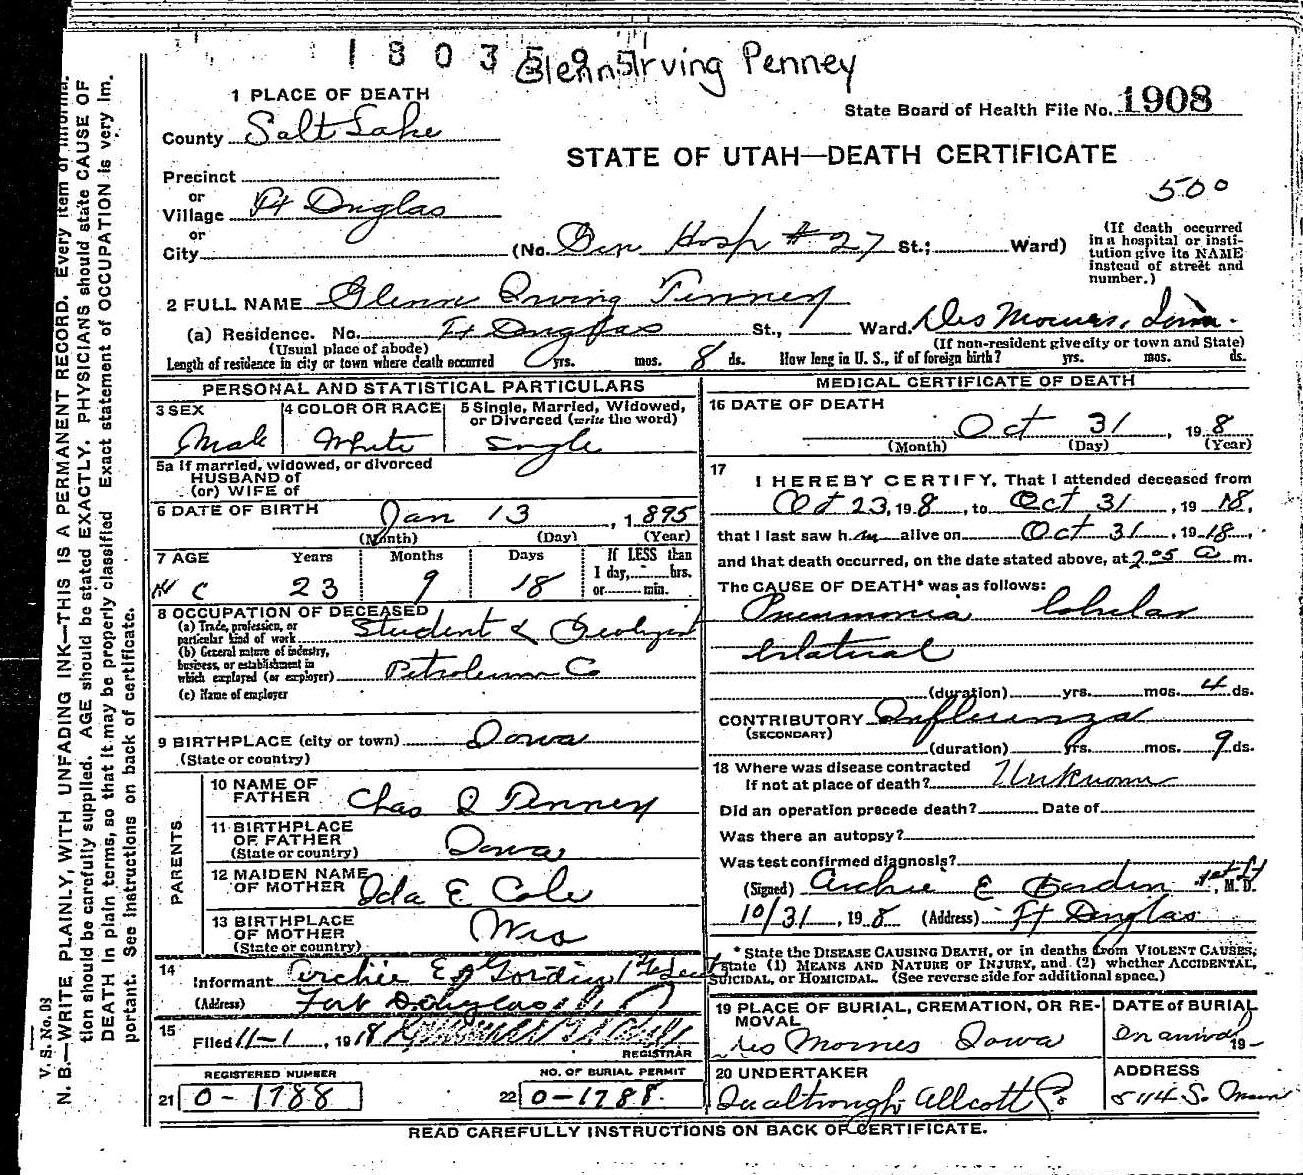 1 8 0 3 5 9 5
Glenn Irving Penney
1 PLACE OF DEATH
State Board of Health File No. 1908
County Salt Lake
STATE OF UTAH—DEATH CERTIFICATE
Precinct
500
or
Village Ft Douglas
or
City (No. Gen Hosp #27 St.; Ward)
(If death occurred in a hospital or insti-
tution give its NAME
instead of street and
number.)
2 FULL NAME Glenn Irving Penney
(a) Residence. No. Ft Douglas St., Ward. Des Moines, Iowa.
(Usual place of abode) (If non-resident give city or town and State)
Length of residence in city or town where death occurred 0 yrs. mos. 8 ds. How long in U. S., if of foreign birth? yrs. mos. ds.
PERSONAL AND STATISTICAL PARTICULARS
3 SEX Male
4 COLOR OR RACE White
5 Single, Married, Widowed,
or Divorced (write the word)
Single
5a If married, widowed, or divorced
HUSBAND of
(or) WIFE of
6 DATE OF BIRTH Jan 13, 1895
(Month) (Day) (Year)
7 AGE Years Months Days If LESS than
23 9 18 1 day, hrs.
or min.
8 OCCUPATION OF DECEASED
(a) Trade, profession, or
particular kind of work Student & Geologist
(b) General nature of industry,
business, or establishment in
which employed (or employer) Petroleum Co
(c) Name of employer
9 BIRTHPLACE (city or town) Iowa
(State or country)
PARENTS
10 NAME OF
FATHER Chas I Penney
11 BIRTHPLACE
OF FATHER
(State or country) Iowa
12 MAIDEN NAME
OF MOTHER Ida E Cole
13 BIRTHPLACE
OF MOTHER
(State or country) Wis
14
Informant Archie E
(Address) Fort Douglas
15
Filed 11-1, 1918
REGISTRAR
REGISTERED NUMBER
21 0-1788
NO. OF BURIAL PERMIT
22 0-1788.
MEDICAL CERTIFICATE OF DEATH
16 DATE OF DEATH
Oct 31, 19 8
(Month) (Day) (Year)
17
I HEREBY CERTIFY, That I attended deceased from
Oct 23, 19 8, to Oct 31, 19 18,
that I last saw him alive on Oct 31, 19 18,
and that death occurred, on the date stated above, at 2.05 a m.
The CAUSE OF DEATH* was as follows:
Pneumonia lobular
bilateral
(duration) yrs. mos. 4 ds.
CONTRIBUTORY Influenza
(SECONDARY)
(duration) yrs. mos. 9 ds.
18 Where was disease contracted
If not at place of death? Unknown
Did an operation precede death? Date of
Was there an autopsy?
Was test confirmed diagnosis?
(Signed) Archie E 1st Lt, M. D.
10/31, 19 8 (Address) Ft Douglas
* State the DISEASE CAUSING DEATH, or in deaths from VIOLENT CAUSES,
state (1) MEANS AND NATURE OF INJURY, and (2) whether ACCIDENTAL,
SUICIDAL, or HOMICIDAL. (See reverse side for additional space.)
19 PLACE OF BURIAL, CREMATION, OR RE-
MOVAL
Des Moines Iowa
DATE of BURIAL
On arrival 19
20 UNDERTAKER
ADDRESS
544 S. Main
READ CAREFULLY INSTRUCTIONS ON BACK OF CERTIFICATE.
V. S. No. D3
N. B.—WRITE PLAINLY, WITH UNFADING INK—THIS IS A PERMANENT RECORD. Every item of informa-
tion should be carefully supplied. AGE should be stated EXACTLY. PHYSICIANS should state CAUSE OF
DEATH in plain terms, so that it may be properly classified. Exact statement of OCCUPATION is very im-
portant. See instructions on back of certificate.